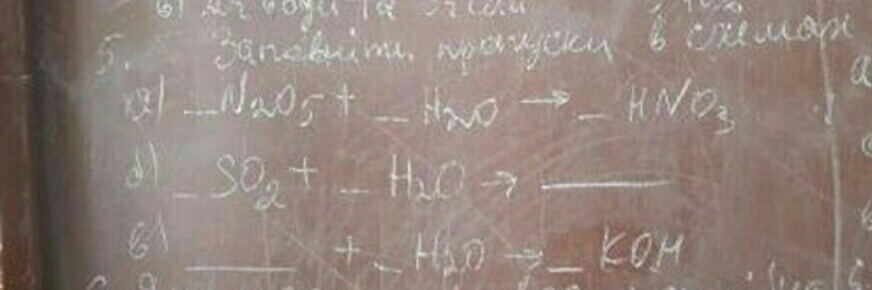 5. Заповніть пропуски в схемах
а) _N2O5 + _ H2O → _ HNO3
б) _SO2 + _ H2O → ____
в) ____ + _ H2O → _ KOH